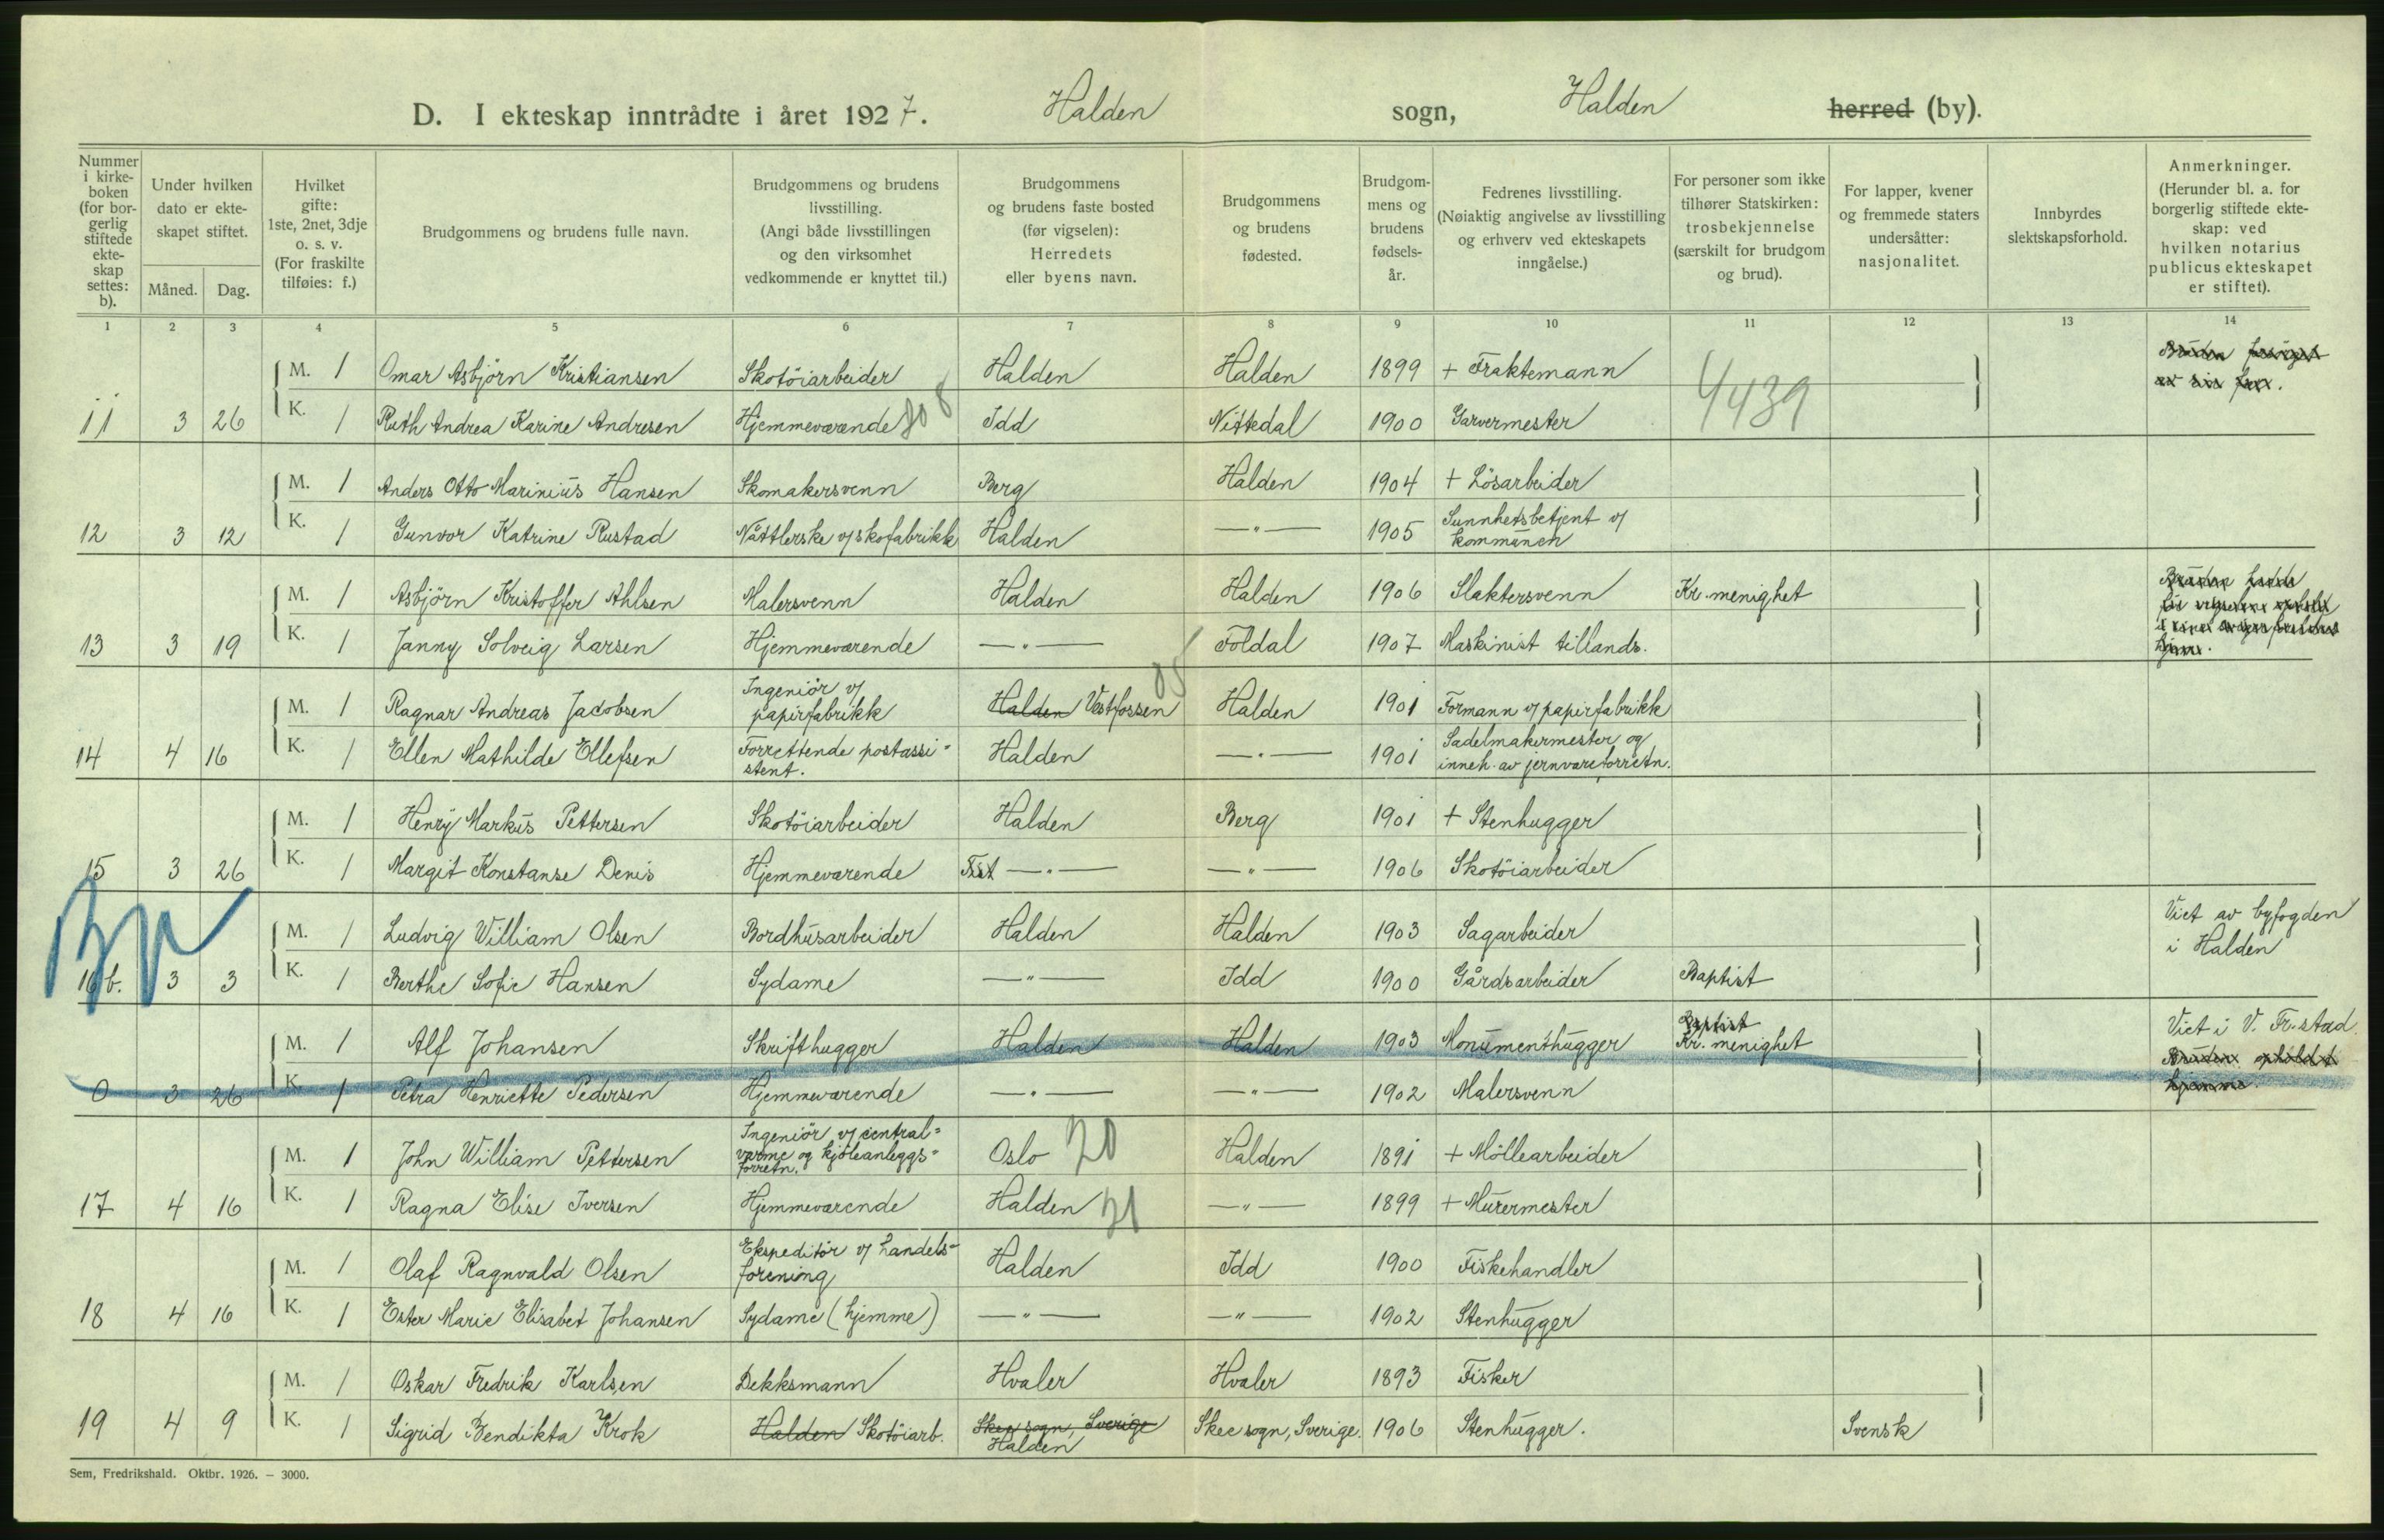 D. I ekteskap inntrådte i året 1927. Halden sogn, Halden herred (by).
Nummer i kirkeboken (for borgerlig stiftede ekteskap settes: b).
Under hvilken dato er ekteskapet stiftet.
Måned. Dag.
Hvilket gifte: 1ste, 2net, 3dje o. s. v. (For fraskilte tilføies: f.)
Brudgommens og brudens fulle navn.
Brudgommens og brudens livsstilling. (Angi både livsstillingen og den virksomhet vedkommende er knyttet til.)
Brudgommens og brudens faste bosted (før vigselen): Herredets eller byens navn.
Brudgommens og brudens fødested.
Brudgommens og brudens fødselsår.
Fedrenes livsstilling. (Nøiaktig angivelse av livsstilling og erhverv ved ekteskapets inngåelse.)
For personer som ikke tilhører Statskirken: trosbekjennelse (særskilt for brudgom og brud).
For lapper, kvener og fremmede staters undersåtter: nasjonalitet.
Innbyrdes slektskapsforhold.
Anmerkninger. (Herunder bl. a. for borgerlig stiftede ekteskap: ved hvilken notarius publicus ekteskapet er stiftet).
1 2 3 4 5 6 7 8 9 10 11 12 13 14
M. 1 Omar Asbjörn Kristiansen Skotöiarbeider Halden Halden 1899 + Fraktemann
11 3 26 K. 1 Ruth Andrea Karine Andresen Hjemmeværende Idd Nittedal 1900 Garvermester 4439
M. 1 Anders Otto Marinius Hansen Skomakersvenn Berg Halden 1904 + Lösarbeider
12 3 12 K. 1 Gunvor Katrine Rustad Nåttlerske v/skofabrikk Halden —"— 1905 Sunnhetsbetjent v/ kommunen
M. 1 Asbjörn Kristoffer Ahlsen Malersvenn Halden Halden 1906 Slaktersvenn Kr. menighet
13 3 19 K. 1 Janny Solveig Larsen Hjemmeværende —"— Foldal 1907 Maskinist tillands.
M. 1 Ragnar Andreas Jacobsen Ingeniör v/ papirfabrikk Halden Vestfossen 05 Halden 1901 Formann v/ papirfabrikk
14 4 16 K. 1 Ellen Mathilde Ellefsen Forrettende postassistent. Halden —"— 1901 Sadelmakermester og inneh. av jernvareforretn.
M. 1 Henry Markus Pettersen Skotöiarbeider Halden Berg 1901 + Stenhugger
15 3 26 K. 1 Margit Konstanse Denis Hjemmeværende —"— —"— 1906 Skotöiarbeider
M. 1 Ludvig William Olsen Bordhusarbeider Halden Halden 1903 Sagarbeider Viet av byfogden i Halden
16 b. 3 3 K. 1 Berthe Sofie Hansen Sydame —"— Idd 1900 Gårdsarbeider Baptist
M. 1 Alf Johansen Skrifthugger Halden Halden 1903 Monumenthugger Baptist Kr. menighet Viet i V. Fr.stad
0 3 26 K. 1 Petra Henriette Pedersen Hjemmeværende —"— —"— 1902 Malersvenn
M. 1 John William Pettersen Ingeniör v/ central= varme og kjöleanleggs= forretn. Oslo 20 Halden 1891 + Möllearbeider
17 4 16 K. 1 Ragna Elise Iversen Hjemmeværende Halden —"— 1899 + Murermester
M. 1 Olaf Ragnvald Olsen Ekspeditör v/ handels= forening Halden Idd 1900 Fiskehandler
18 4 16 K. 1 Ester Marie Elisabet Johansen Sydame (hjemme) —"— —"— 1902 Stenhugger
M. 1 Oskar Fredrik Karlsen Dekksmann Hvaler Hvaler 1893 Fisker
19 4 9 K. 1 Sigrid Bendikta Krok Halden Skotöiarb. Skee sogn, Sverige Halden Skee sogn, Sverige. 1906 Stenhugger. Svensk
Sem, Fredrikshald. Oktbr. 1926. — 3000.